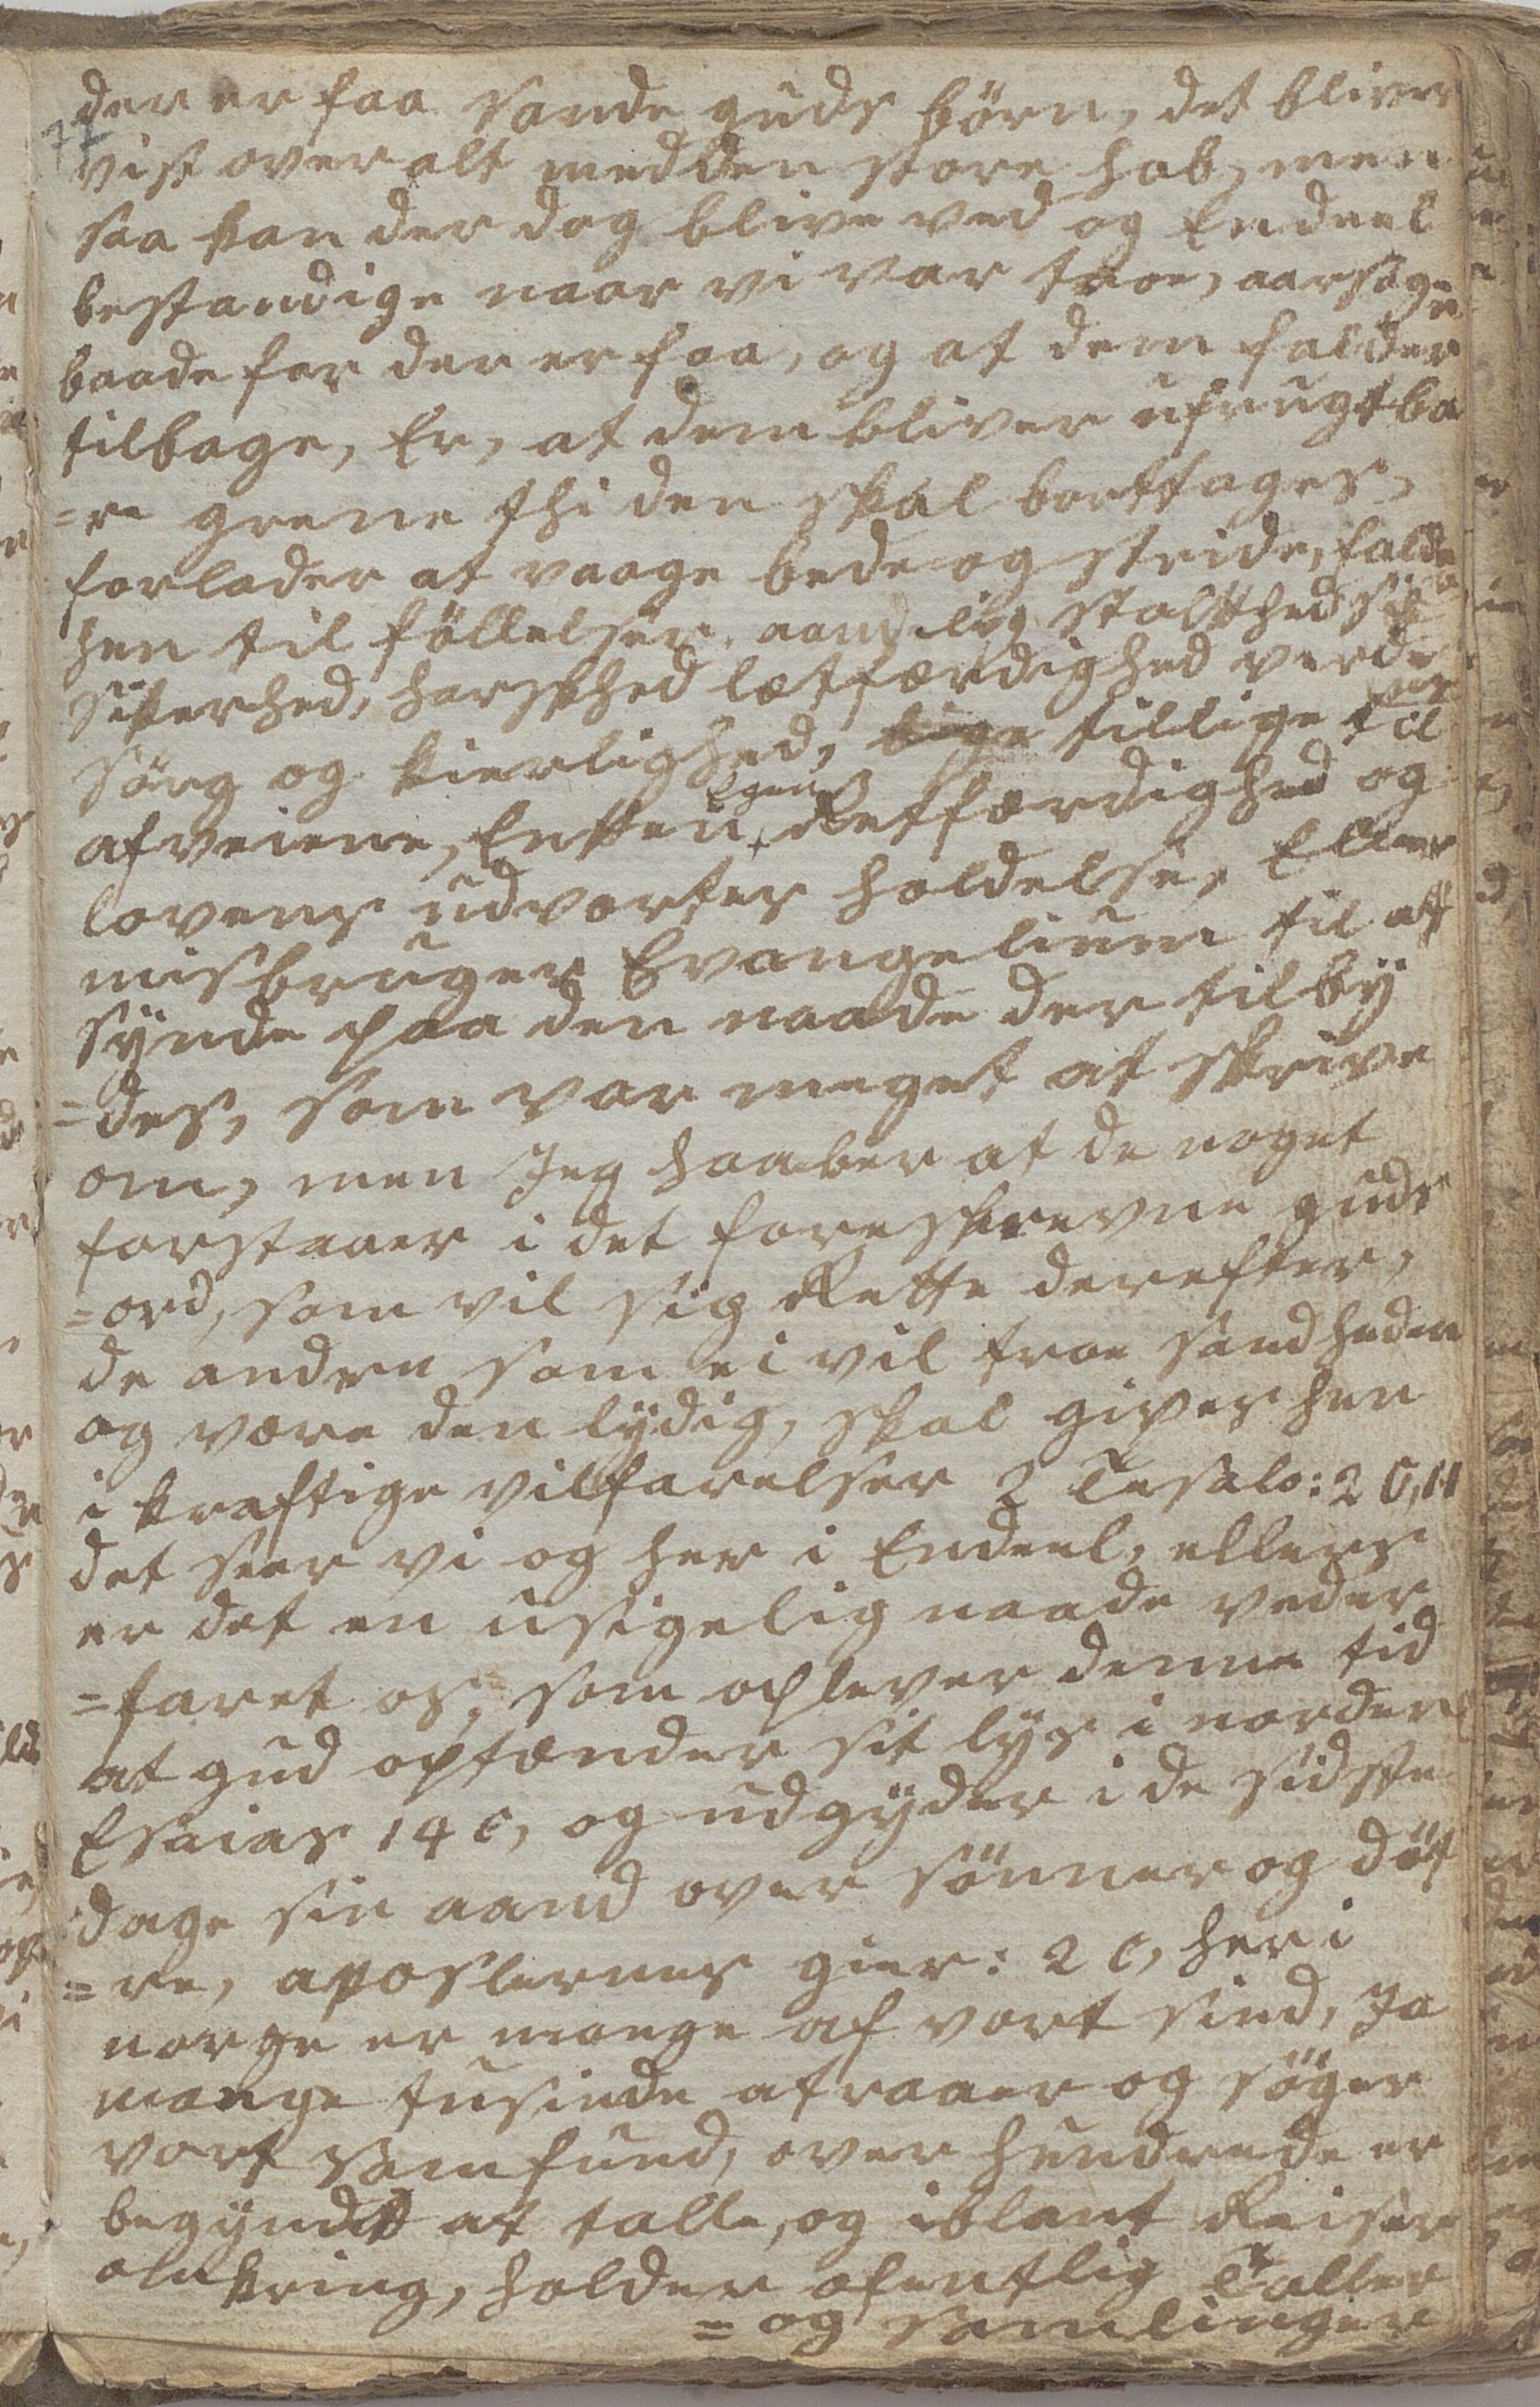 der er faa sande guds börn, det bliver
77
vist over alt med den store hob, men
saa kan der dog blive ved og Endeel
bestandige naar vi var troe, aarsagen
baade for der er faa, og at dem falder
tilbage, Er, at dem bliver ufrugtba
=re grene thi den skal borttages,
forlader at vaage bede og stride, falder
hen til föllelser, aandelig stolthed
sikerhed, harskhed lætfærdighed verdens
sörg og kierlighed, tillige til
afveiene, Enten Egen Retfærdighed og
lovens udvortes holdelse, Eller
misbruger Evangelium til at
synde paa den naade der tilby
=des, som var meget at skrive
om, men Jeg haaber at de noget
forstaaer i det foreskrevne guds
=ord, som vil sig Rette derefter,
de andre som ei vil troe sandheden
og være den lydig, skal gives hen
i kraftige vilfarelser 2 Tesalo: 2 C, 11
det seer vi og her i Endeel, ellers
er det en usigelig naade veder
=faret os, som oplever denne tid
at gud optænder sit lys i norden
Esaias 14 c, og udgyder i de sidste
dage sin aand over sönner og döt
=re, aposlernes gier: 2 c, her i
norge er mange af vort sind, Ja
mange tusinde attraaer og söger
vort samfund, over hundrede er
begyndt at talle, og iblant Reiser
omkring, holder ofentlig Taller
=og samlinger